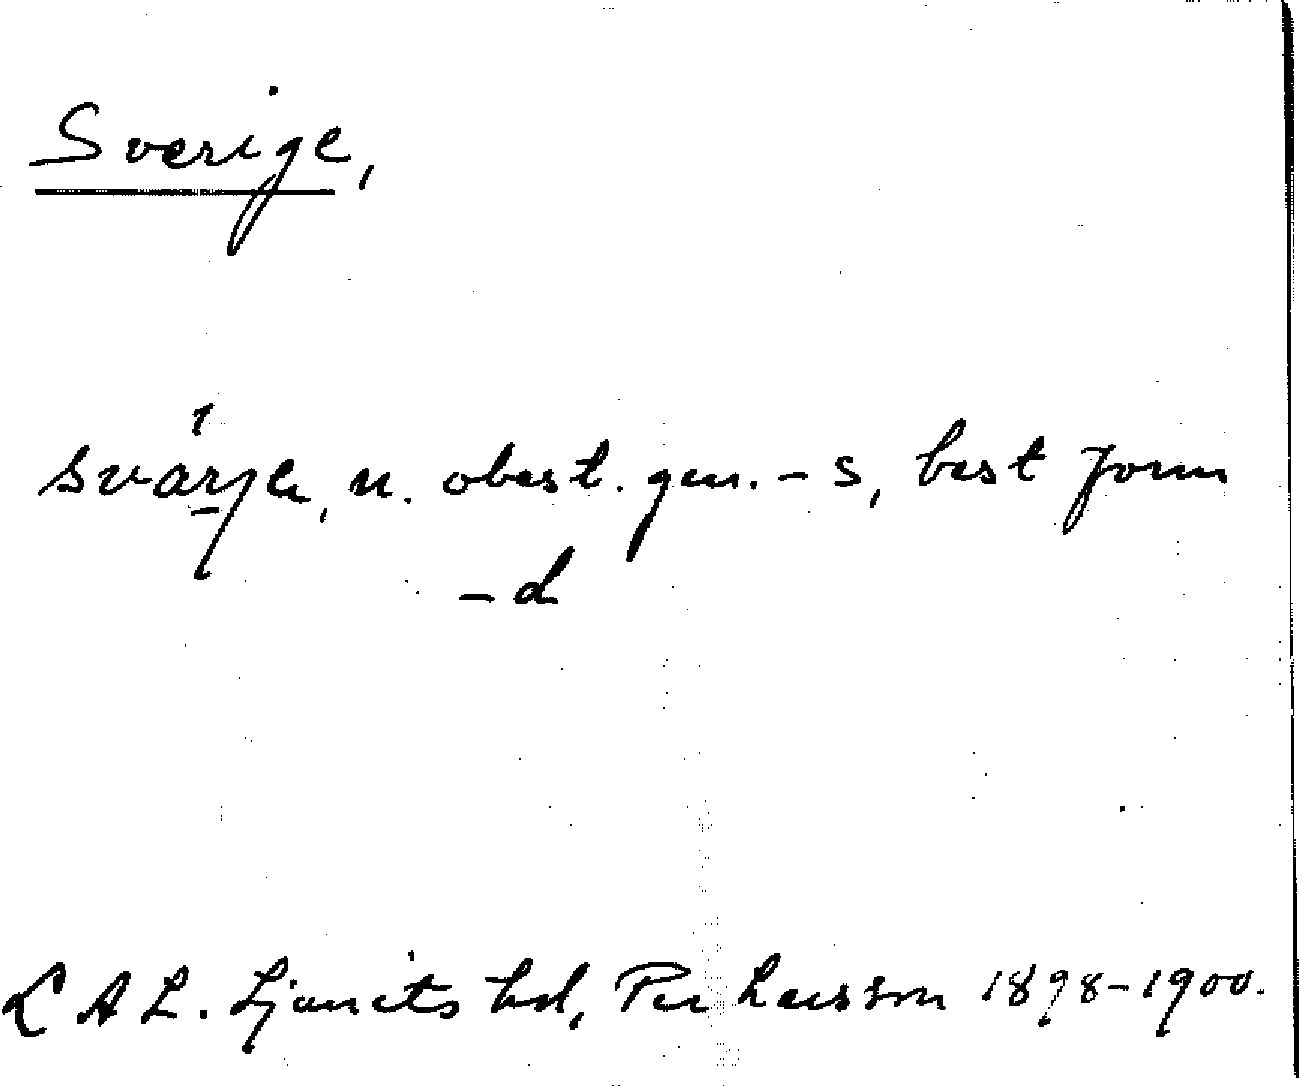 Sverige,
svärje, n. obest. gen. - s, best form
- d
L A L. Ljunits hd, Per Larsson 1898-1900.